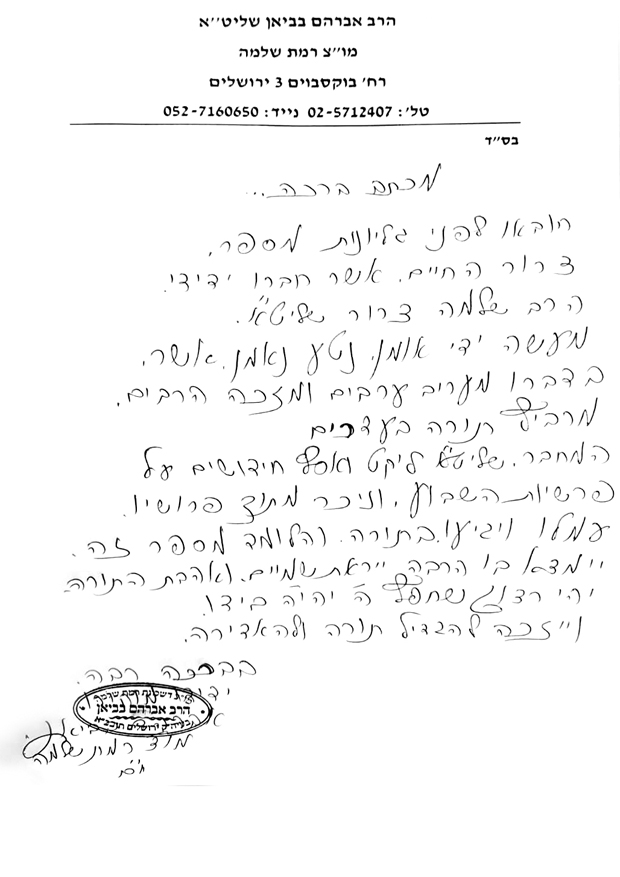 הרב אברהם בביאן שליט''א
מו''צ רמת שלמה
רח' בוקסבוים 3 ירושלים
טל': 02-5712407 נייד: 052-7160650
בס''ד
מכתב ברכה...
הובאו לפני גליונות מספר,
צרור החיים. אשר חברו ידידי.
הרב שלמה צרור שליט"א.
מעשה ידי אומן. נטע נאמן. אשר.
בדברו מעריב ערבים ומזכה הרבים.
מרביץ תורה בעדרים
המחבר. שליט"א ליקט ואסף חידושים על
פרשיות השבוע. וניכר מתוך פרושיו.
עמלו ויגיעו בתורה. והלומד מספר זה.
יימצא בו הרבה יראת שמיים. ואהבת התורה
יהי רצון שחפץ ה' יהיה בידו.
וייזכה להגדיל תורה ולהאדירה.
בברכה רבה.
הרב אברהם בביאן
מו"צ רמת שלמה